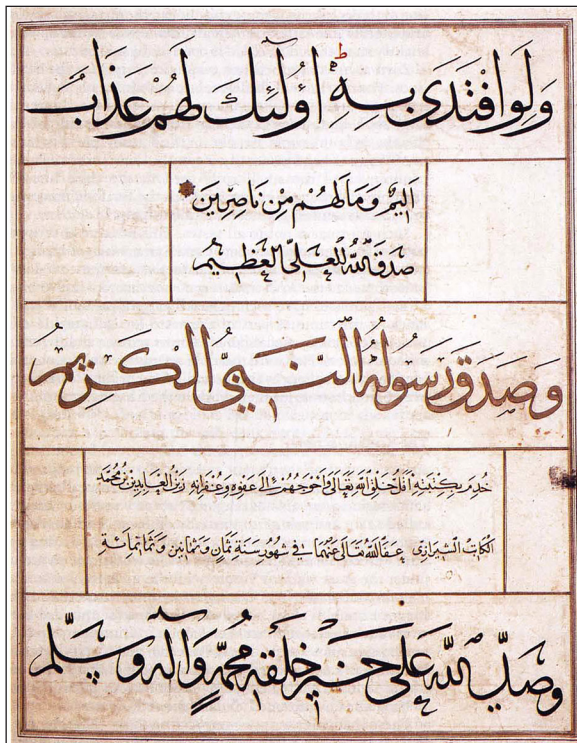 وَلَوِ افْتَدَىٰ بِهِ ۗ أُولَٰئِكَ لَهُمْ عَذَابٌ
اَلِيمٌ وَمَا لَهُمْ مِنْ نَاصِرِينَ
صَدَقَ اللهُ العَلِيُّ العَظِيمُ
وَصَدَقَ رَسُولُهُ النَّبِيُّ الكَرِيمُ
خُدِمَ بِكِتْبَتِهِ اَقَلُّ خَلْقِ اللهِ تَعَالَى وَاَحْوَجُهُمْ اِلَى عَفْوِهِ وَغُفْرَانِهِ زَيْنُ العَابِدِينَ بْنُ مُحَمَّدٍ
الكَاتِبُ الشِّيرَازِي عَفَا اللهُ تَعَالَى عَنْهُمَا فِي شُهُورِ سَنَةِ ثَمَانٍ وَثَمَانِينَ وَثَمَانِمَائَةٍ
وَصَلَّى اللهُ عَلَى خَيْرِ خَلْقِهِ مُحَمَّدٍ وَآلِهِ وَسَلَّمَ